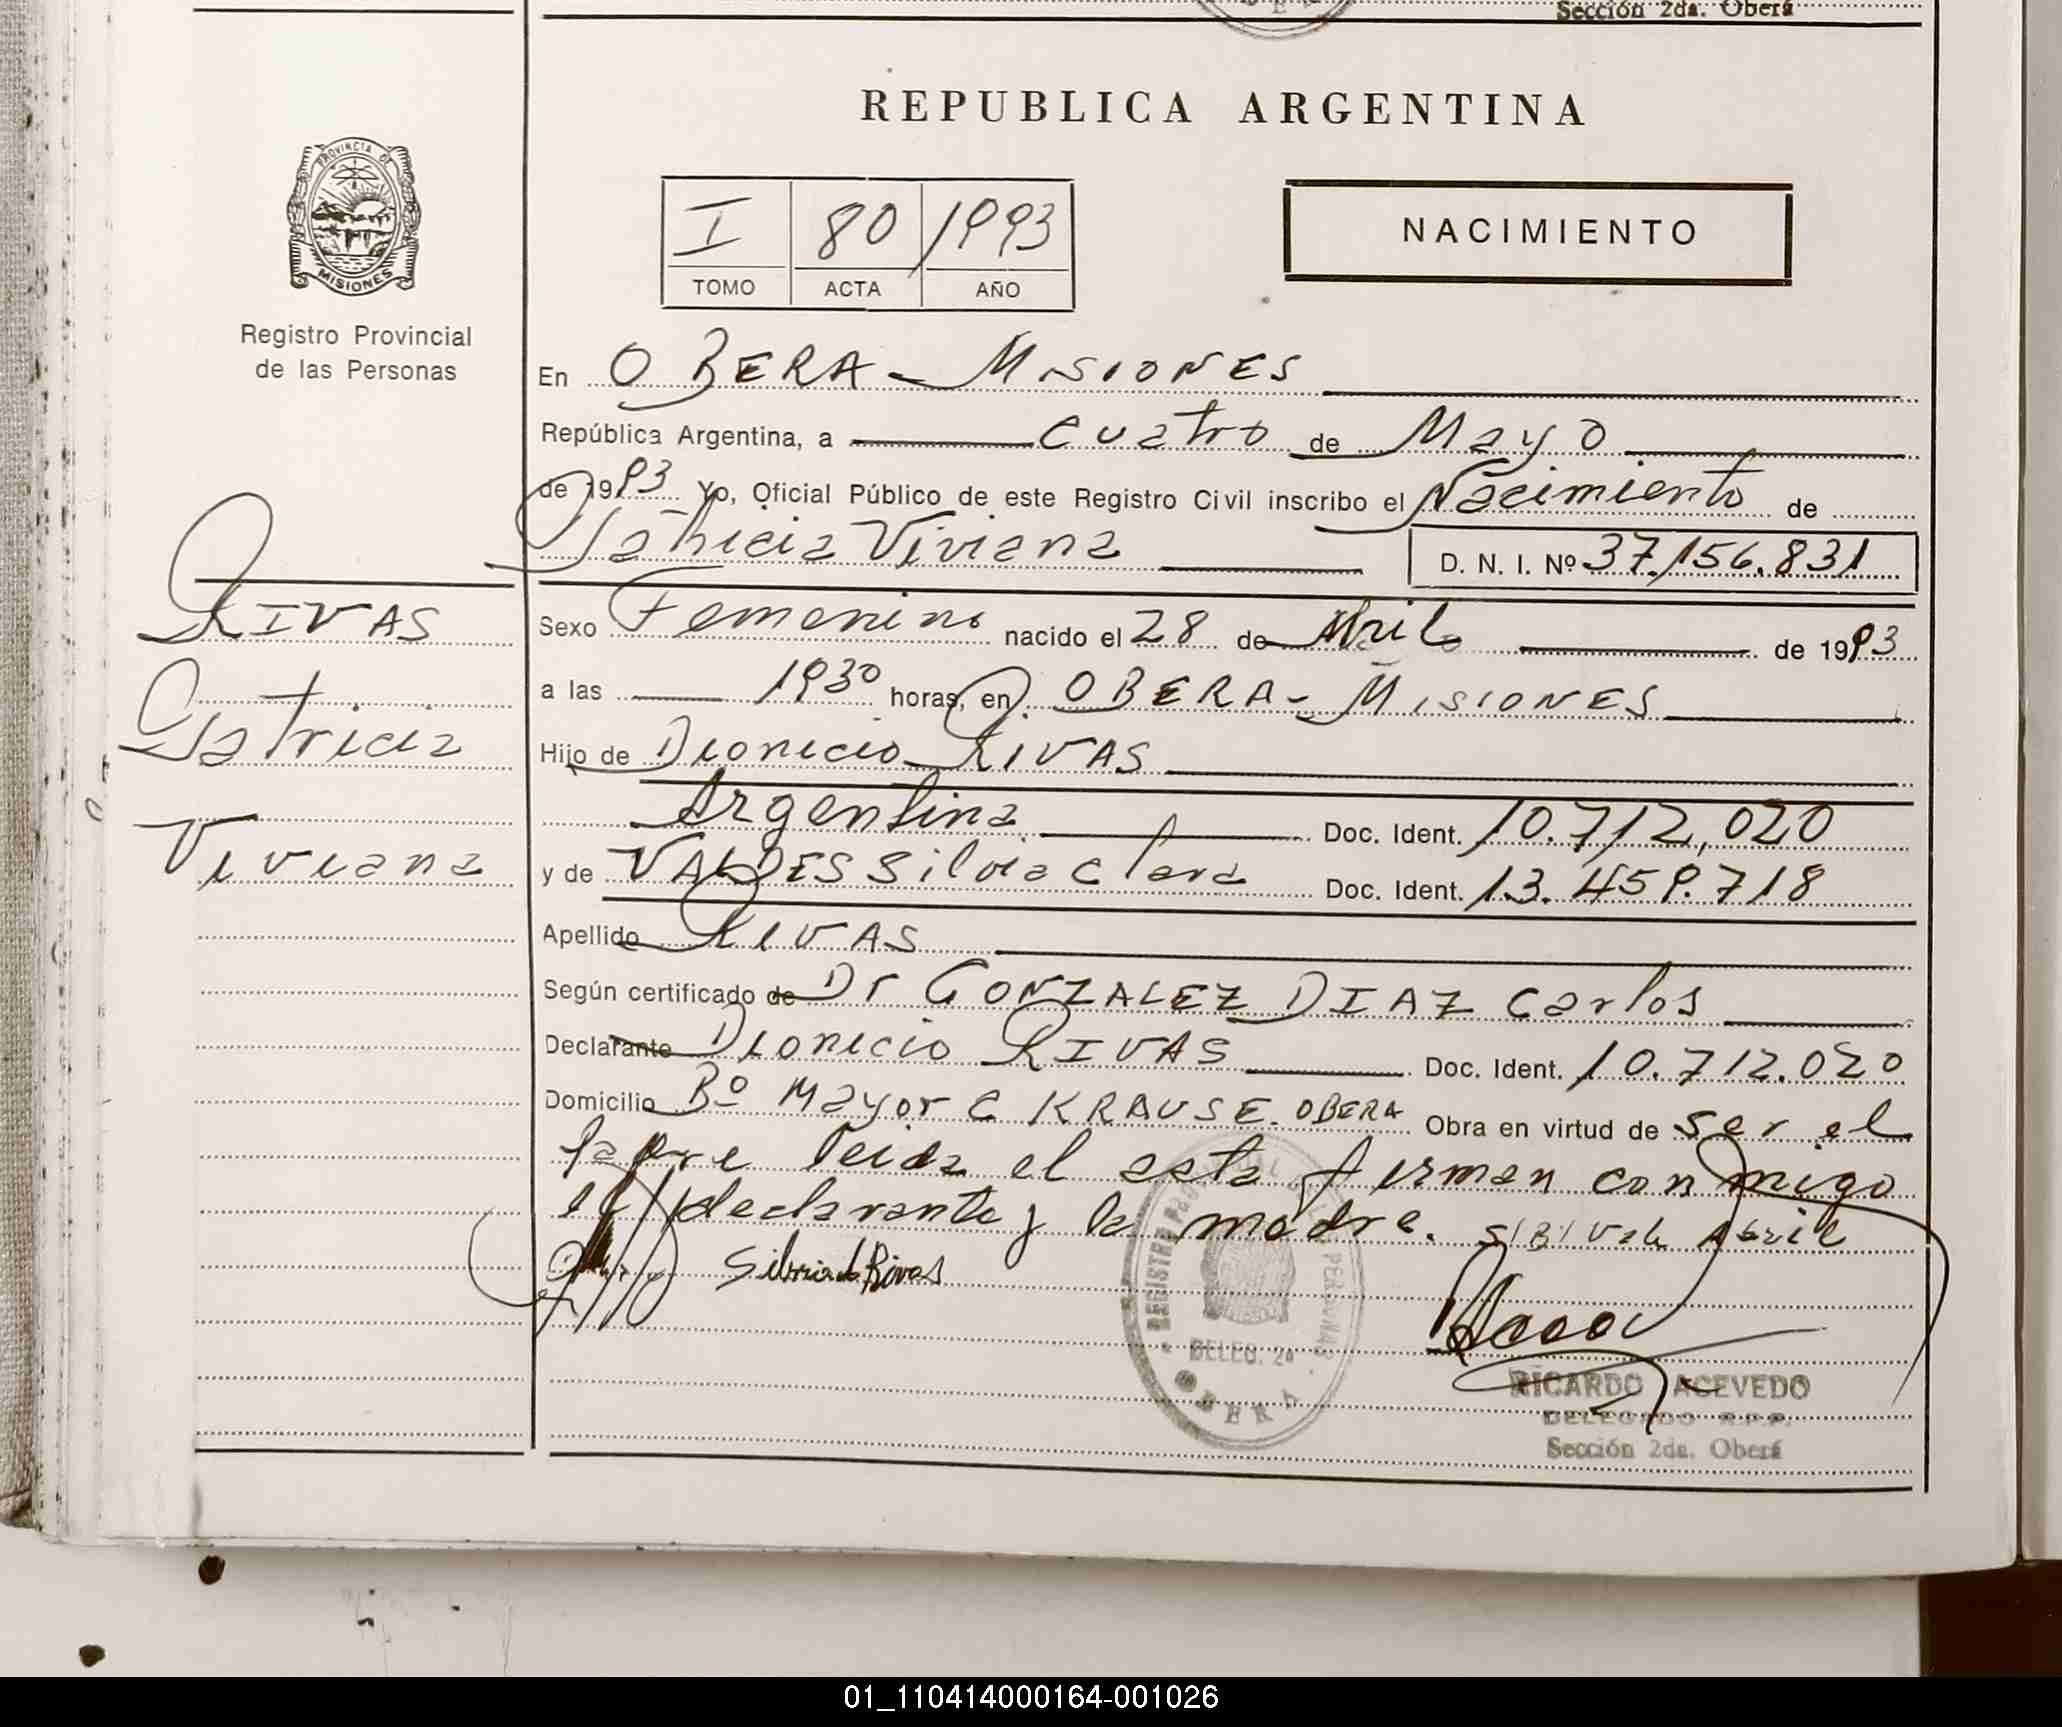 Sección 2da. Oberá
REPUBLICA ARGENTINA
PROVINCIA DE
MISIONES
Registro Provincial
de las Personas
I 80 1993
TOMO ACTA AÑO
NACIMIENTO
En OBERA - MISIONES
República Argentina, a cuatro de Mayo
de 1993 Yo, Oficial Público de este Registro Civil inscribo el Nacimiento de
Patricia Viviana D. N. I. Nº 37.156.831
RIVAS
Patricia
Viviana
Sexo Femenino nacido el 28 de Abril de 1993
a las 1930 horas, en OBERA - MISIONES
Hijo de Dionicio RIVAS
Argentina Doc. Ident. 10.712,020
y de VALDES Silvia Clara Doc. Ident. 13.459.718
Apellido RIVAS
Según certificado de Dr GONZALEZ DIAZ Carlos
Declarante Dionicio RIVAS Doc. Ident. 10.712.020
Domicilio Bº Mayor C KRAUSE. OBERA Obra en virtud de ser el
Padre leida el acta firman conmigo
el declarante y la madre. S/B/ Vale Abril
Silvia de Rivas
REGISTRO PROVINCIAL DE LAS PERSONAS
DELEG. 2ª
OBERA
RICARDO ACEVEDO
DELEGADO R.P.P.
Sección 2da. Oberá
01_110414000164-001026